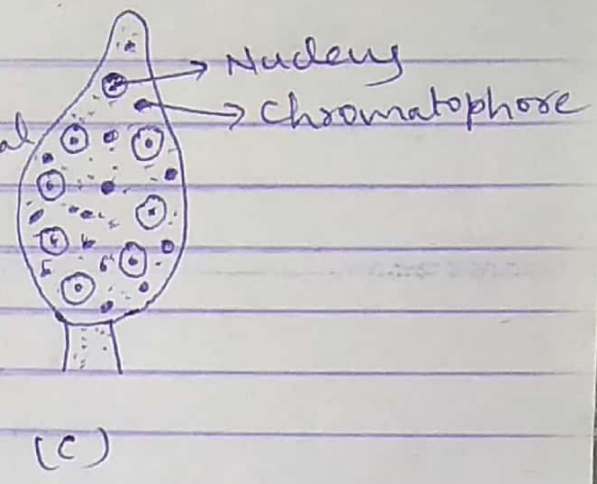 Nucleus
Chromatophore
al
(C)